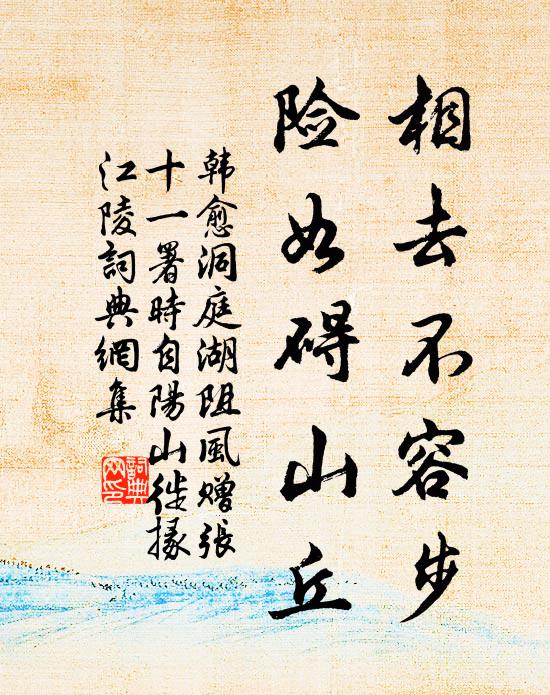 相去不容步
险如碍山丘
韩愈洞庭湖阻風赠張
十一署時自陽山徙掾
江陵詞典網集
詞典
网印